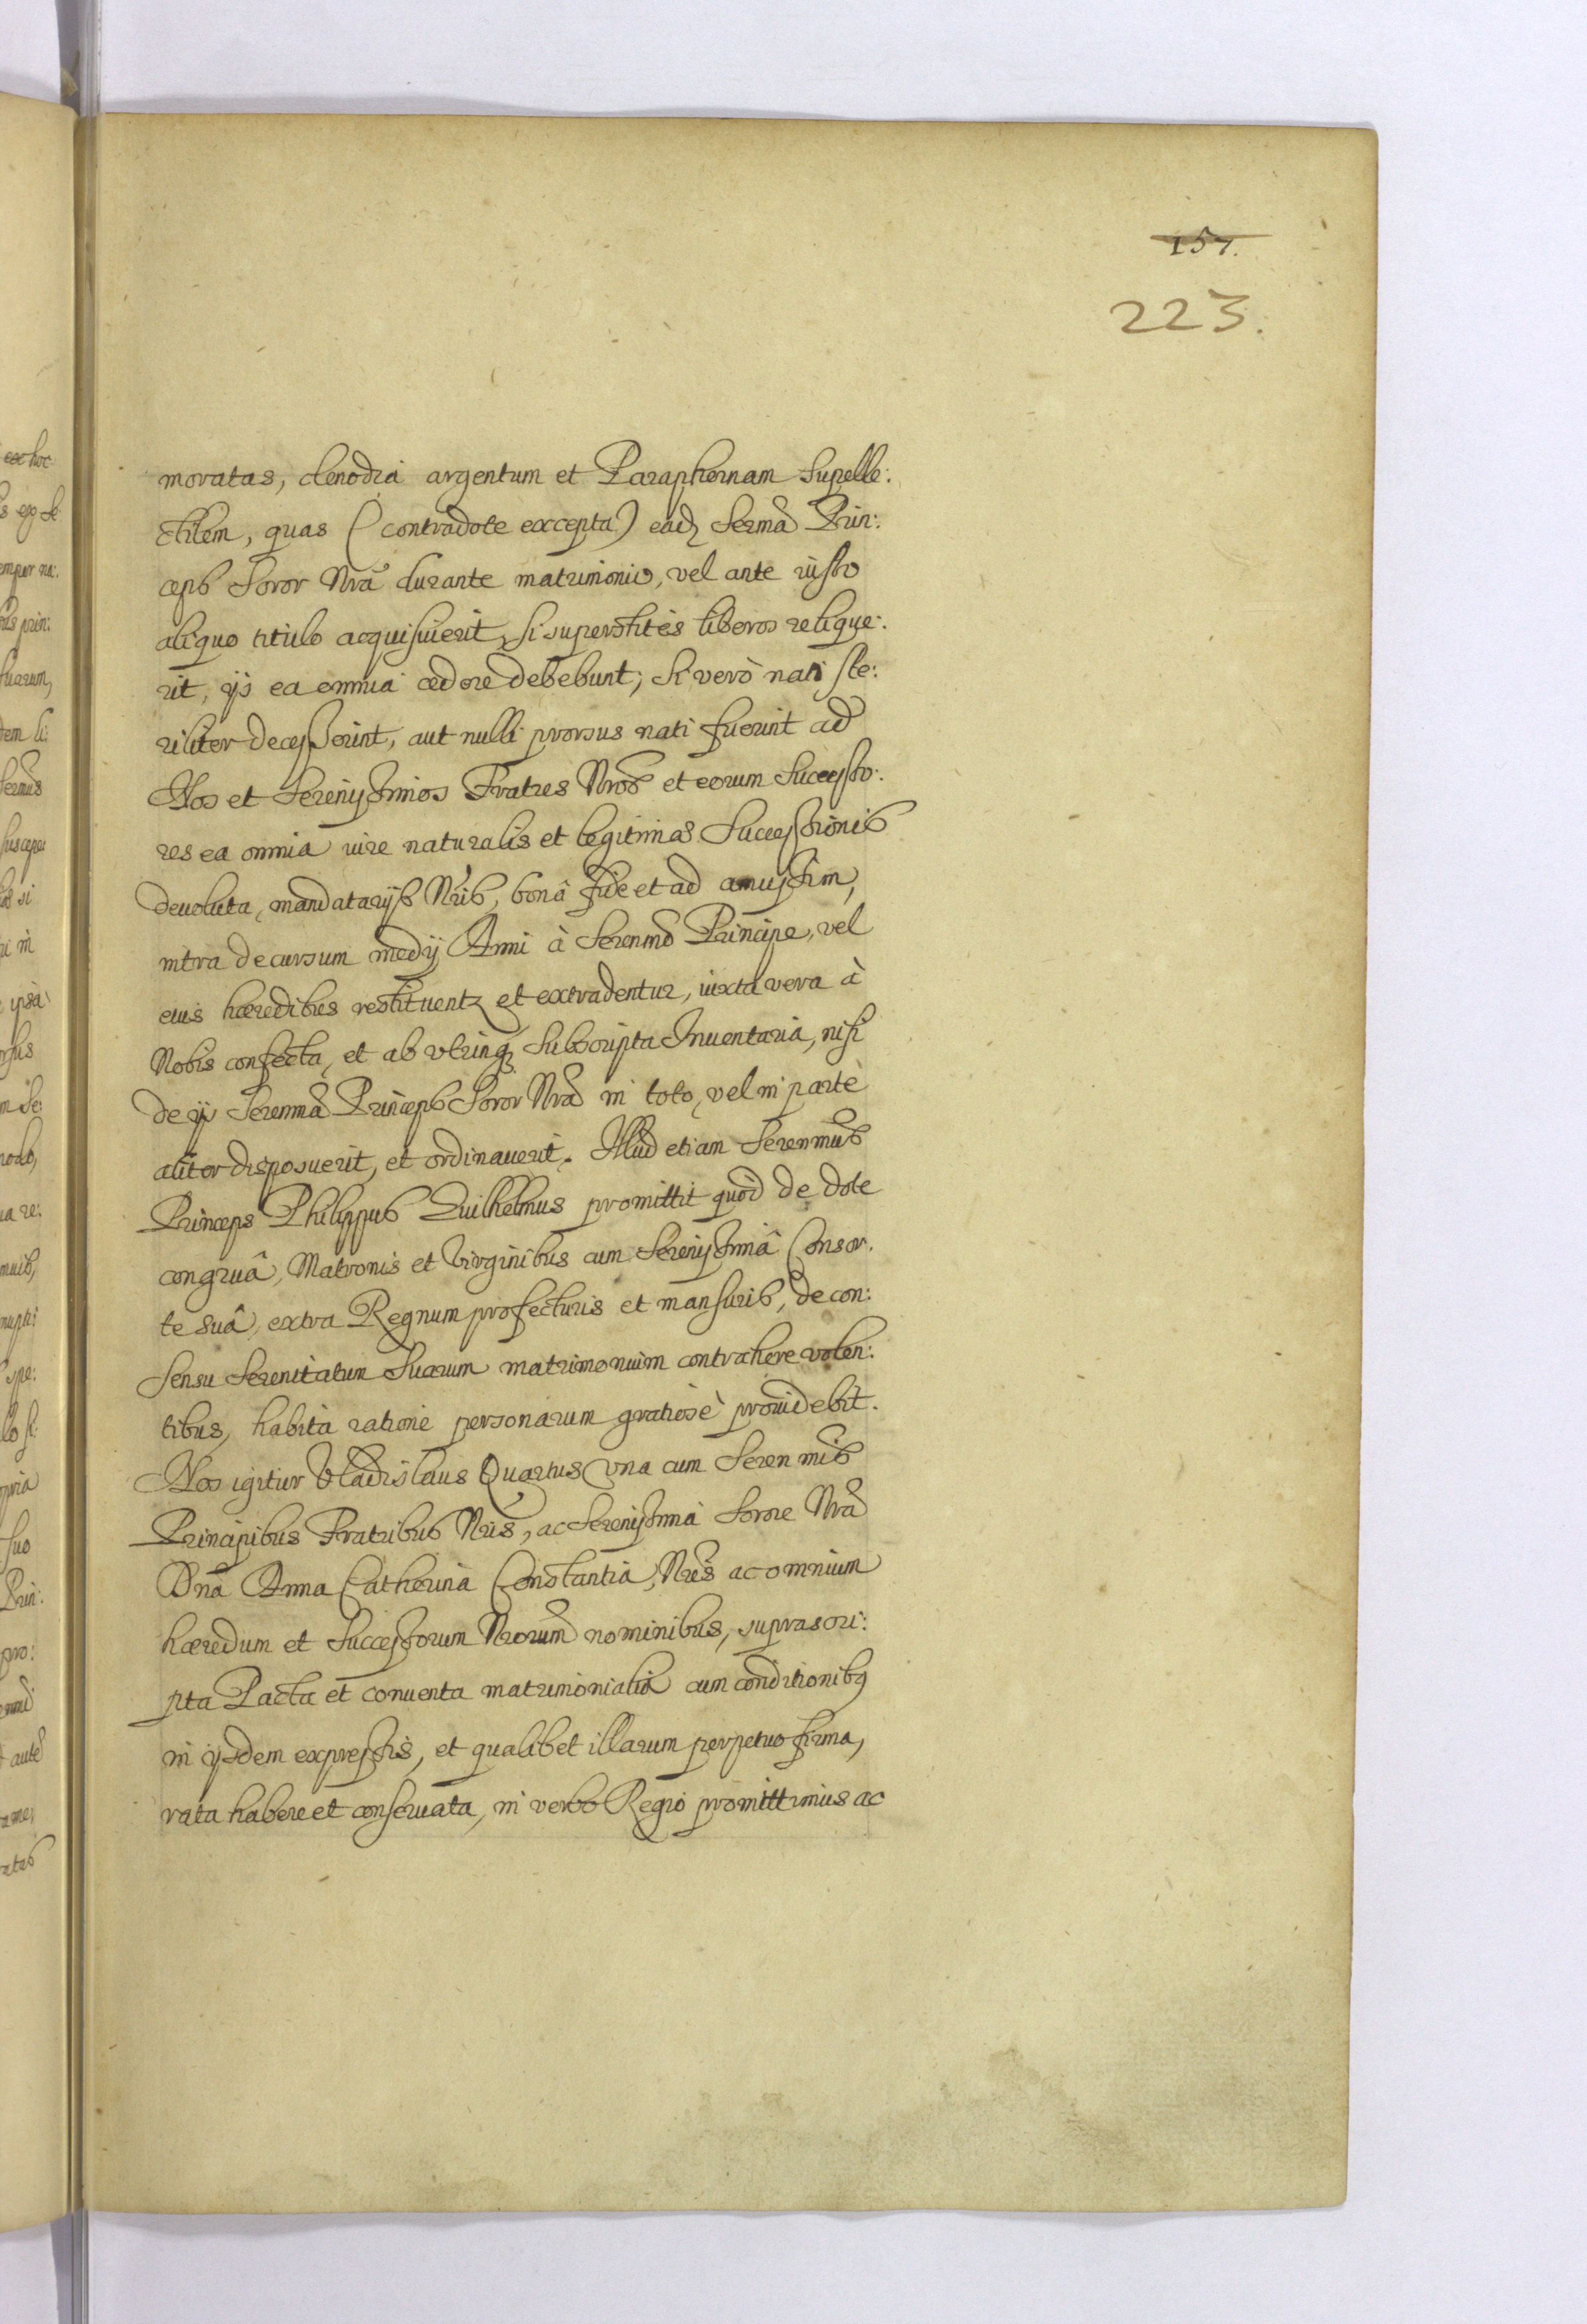 157.
223.
moratas, clenodia argentum et Paraphernam Supelle:
ctilem, quas (contradote excepta) eadz Serma Prin:
ceps Soror Nra durante matrimonio, vel ante iusto
aliquo titulo acquisiuerit, si superstites liberos relique:
rit, ijs ea omnia cedere debebunt; si verò nati ste:
riliter decesserint, aut nulli prorsus nati fuerint ad
Nos et Serenissimos Fratres Nros et eorum Successo:
res ea omnia iure naturalis et legitimas Successionis
deuoluta, mandatarijs Nris, bonâ fide et ad amussim,
intra decursum medij Anni à Serenmo Principe, vel
eius hæredibus restituentz et extradentur, iuxta vera à
Nobis confecta, et ab vtrinqz Subscripta Inuentaria, nisi
de ijs Serenma Princeps Soror Nra in toto, vel in parte
aliter disposuerit, et ordinauerit. Illud etiam Serenmus
Princeps Philippus Quilhelmus promittit quod de dote
congruâ, Matronis et Virginibus cum Serenissimâ Consor:
te suâ, extra Regnum profecturis et mansuris, de con:
sensu Serenitatum Suarum matrimonium contrahere volen:
tibus, habita ratione personarum gratiosè prouidebit.
Nos igitur Vladislaus Quartus vna cum Serenmis
Principibus Fratribus Nris, ac Serenissima Sorore Nra
Dna Anna Catherina Constantia, Nris ac omnium
hæredum et Successorum Nrorum nominibus, suprascri:
pta Pacta et conuenta matrimonialia cum conditionibq
in ijsdem expressis, et qualibet illarum perpetuo firma,
rata habere et conseruata, in verbo Regio promittimus ac